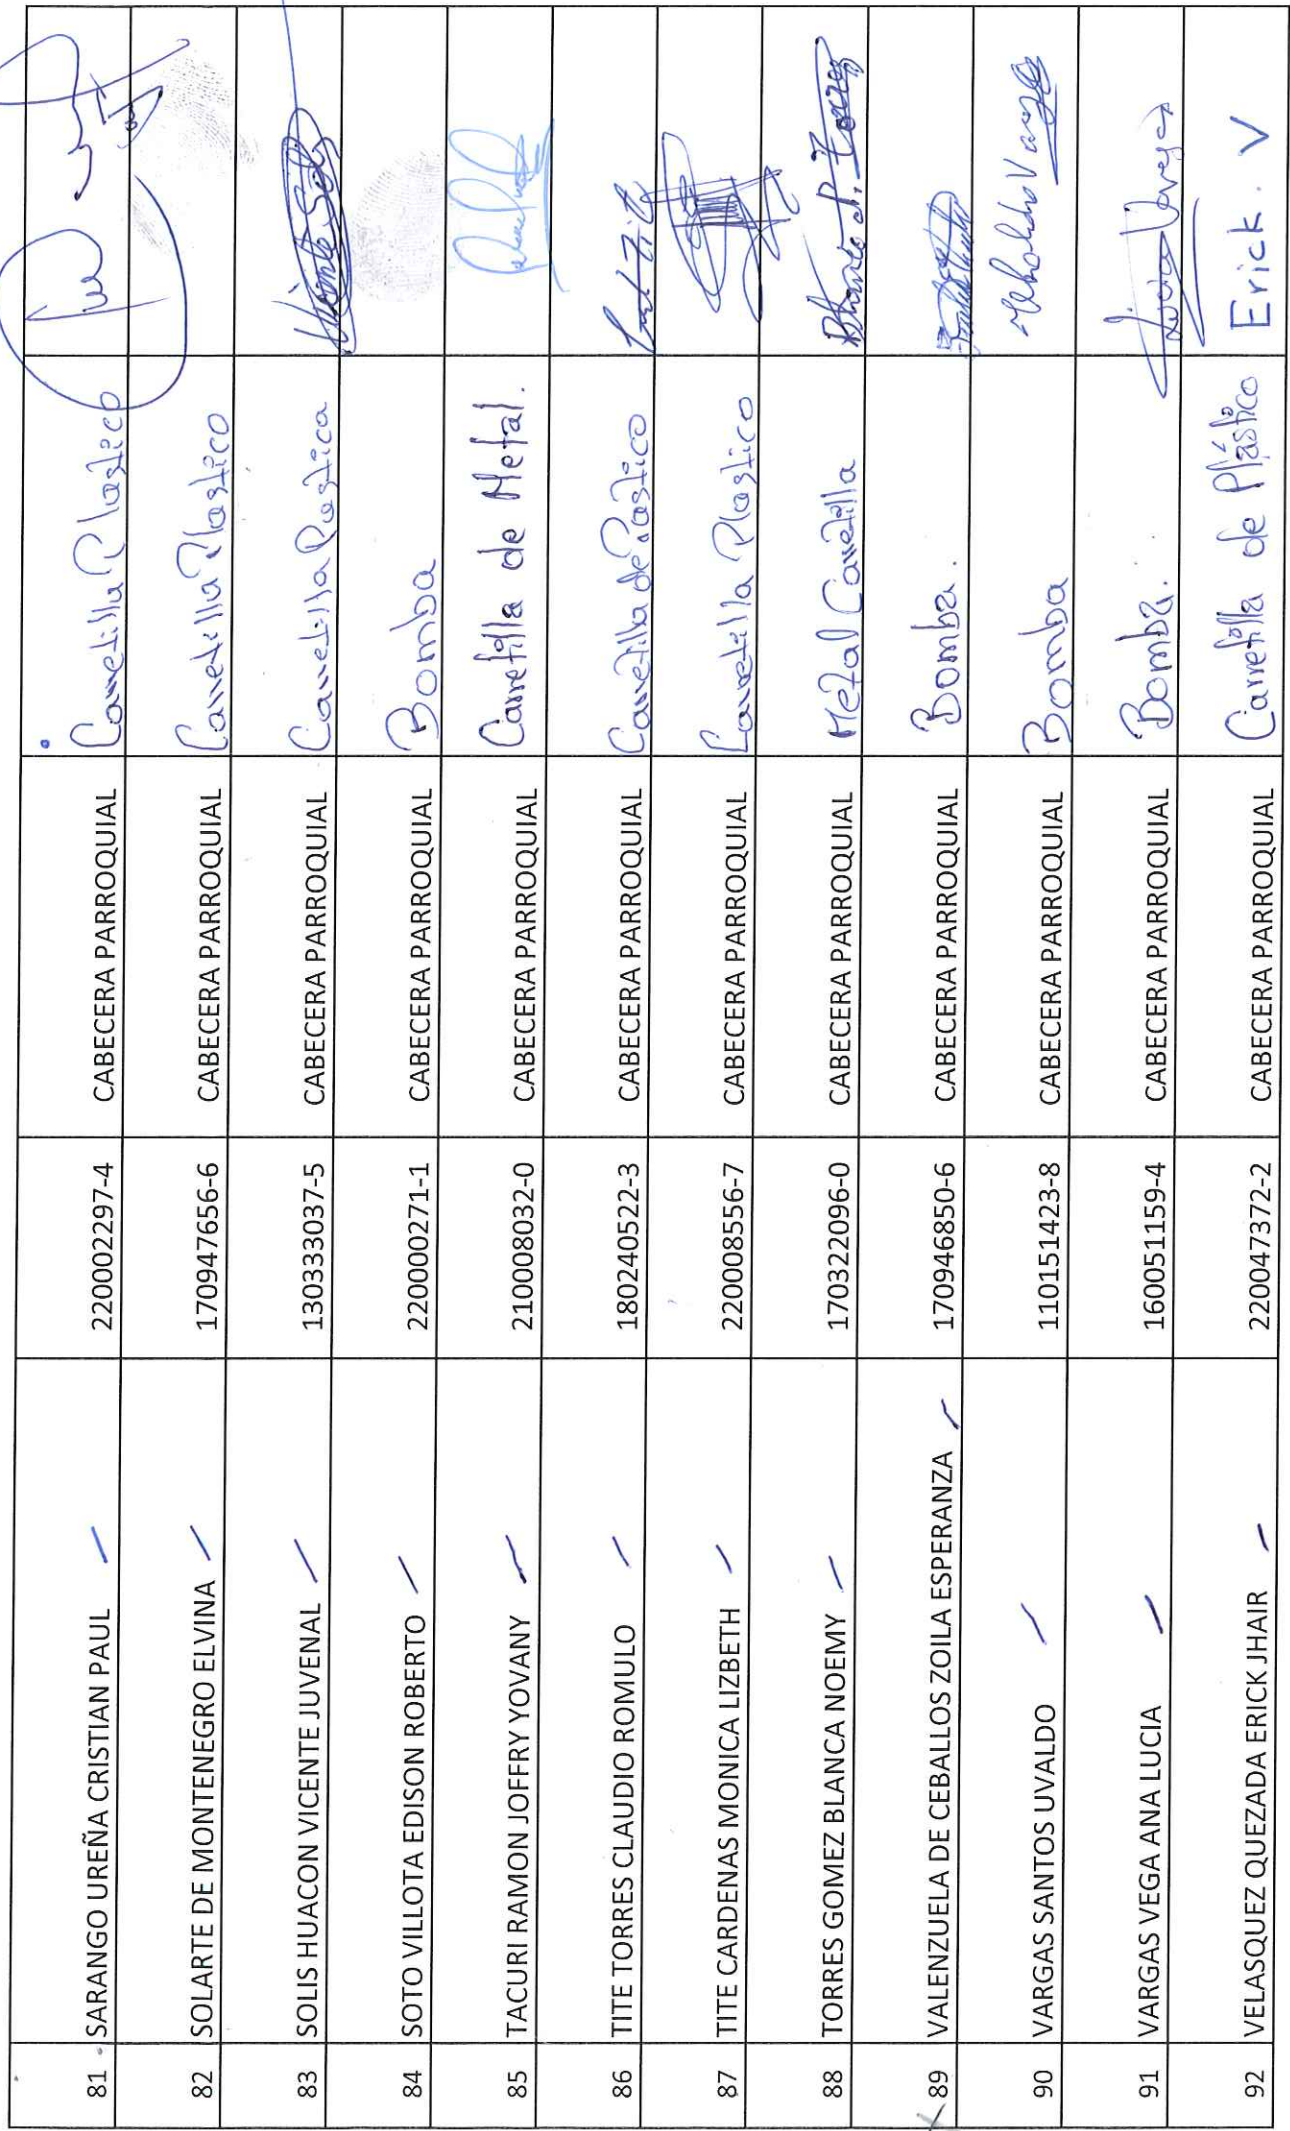 81 SARANGO UREÑA CRISTIAN PAUL 220002297-4 CABECERA PARROQUIAL Carretilla Plastico
82 SOLARTE DE MONTENEGRO ELVINA 170947656-6 CABECERA PARROQUIAL Carretilla Plastico
83 SOLIS HUACON VICENTE JUVENAL 130333037-5 CABECERA PARROQUIAL Carretilla Pastica
84 SOTO VILLOTA EDISON ROBERTO 220000271-1 CABECERA PARROQUIAL Bomba
85 TACURI RAMON JOFFRY YOVANY 210008032-0 CABECERA PARROQUIAL Carretilla de Metal.
86 TITE TORRES CLAUDIO ROMULO 180240522-3 CABECERA PARROQUIAL Carretilla de Pastico
87 TITE CARDENAS MONICA LIZBETH 220008556-7 CABECERA PARROQUIAL Carretilla Plastico
88 TORRES GOMEZ BLANCA NOEMY 170322096-0 CABECERA PARROQUIAL Metal Carretilla
89 VALENZUELA DE CEBALLOS ZOILA ESPERANZA 170946850-6 CABECERA PARROQUIAL Bomba.
90 VARGAS SANTOS UVALDO 110151423-8 CABECERA PARROQUIAL Bomba
91 VARGAS VEGA ANA LUCIA 160051159-4 CABECERA PARROQUIAL Bomba.
92 VELASQUEZ QUEZADA ERICK JHAIR 220047372-2 CABECERA PARROQUIAL Carretilla de Plástico Erick. V